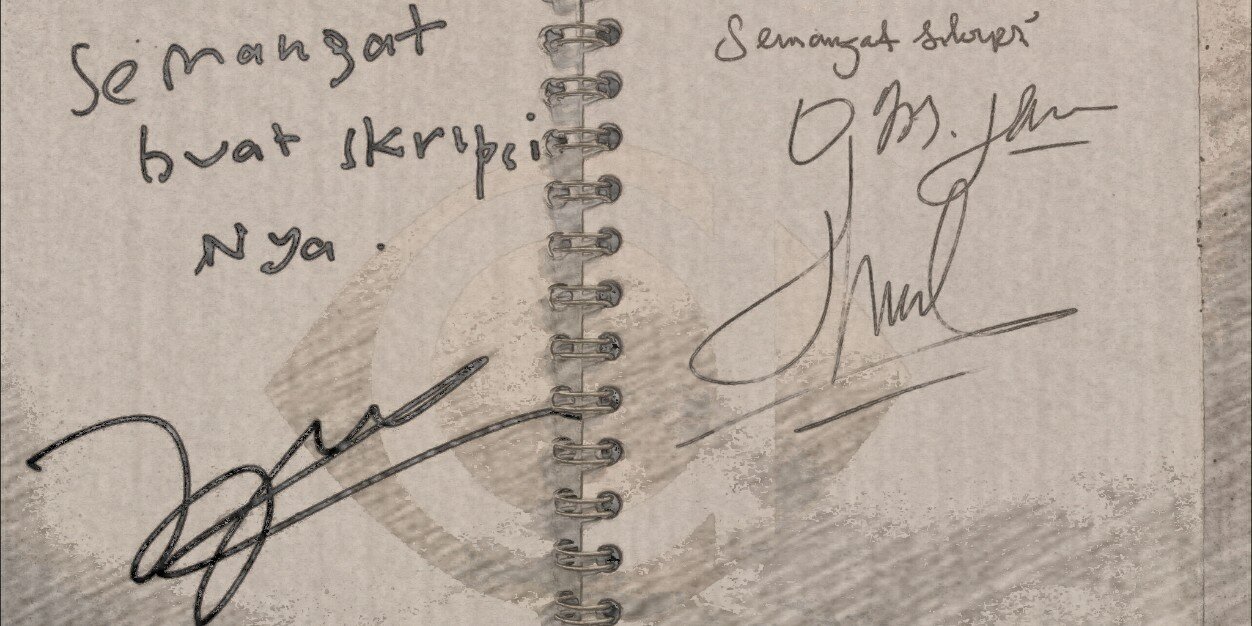 Semangat
buat skripsi
Nya.
Semangat skripsi